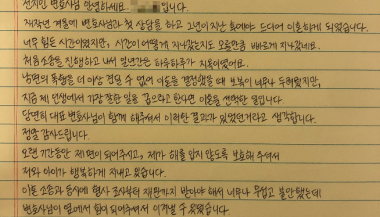 변호사님 안녕하세요. 입니다.
재작년 겨울에 변호사님과 첫 상담을 하고 2년이 지난 후에야 드디어 이혼하게 되었습니다.
너무 힘든 시간이었지만, 시간이 어떻게 지나갔는지도 모를만큼 빠르게 지나갔네요.
처음 소송을 진행하고 나서 일년간은 하루하루가 지옥이었어요.
남편의 폭행을 더 이상 견딜 수 없어 이혼을 결정했을 때 보복이 너무나 두려웠지만,
지금 제 인생에서 가장 잘한 일을 꼽으라고 한다면 이혼을 선택한 일입니다.
당연히 대표 변호사님이 함께 해주셔서 이러한 결과가 있었던거라고 생각합니다.
정말 감사드립니다.
오랜 기간동안 제 편이 되어주시고, 제가 해를 입지 않도록 보호해 주셔서
저와 아이가 행복하게 지내고 있습니다.
이혼 소송과 동시에 형사 조사부터 재판까지 받아야 해서 너무나 무섭고 불안했는데
변호사님이 옆에서 힘이 되어주셔서 이겨낼 수 있었습니다.